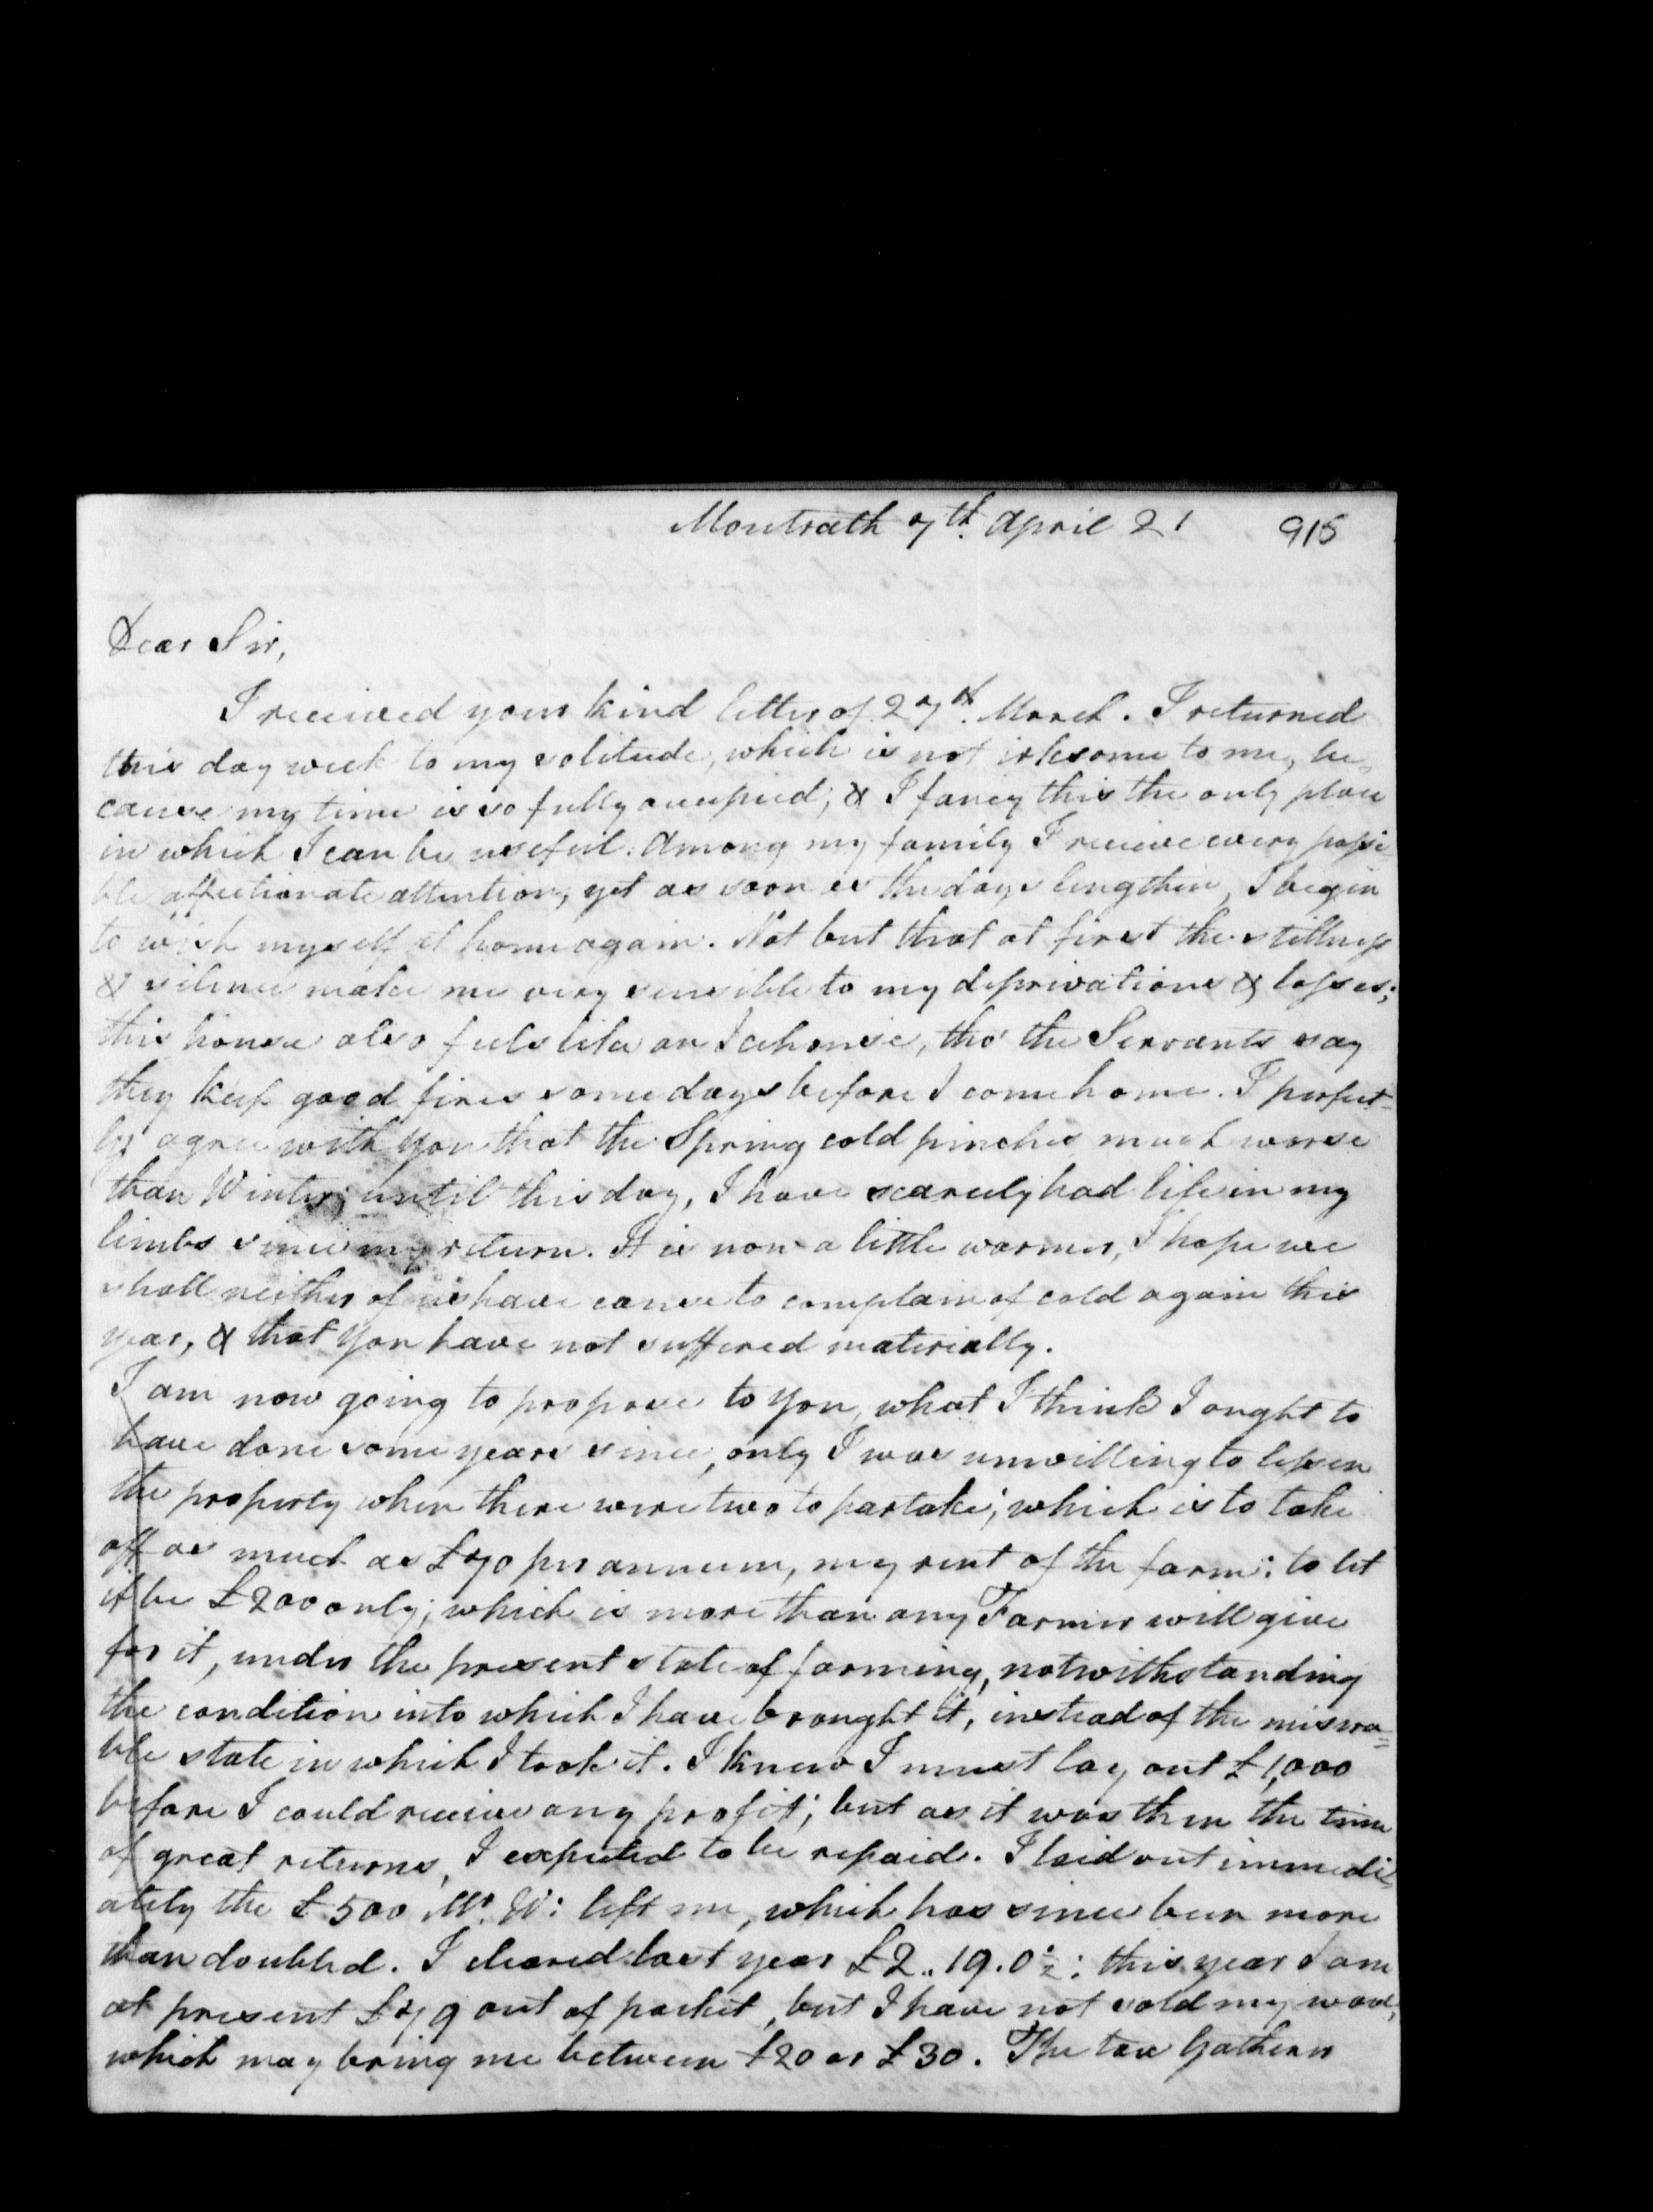 Montrath 7th. April 21 915
Dear Sir,
I received your kind letter of 27th. March. I returned
this day week to my solitude, which is not irksome to me, be-
cause my time is so fully occupied; & I fancy this the only place
in which I can be useful. Among my family I receive every possi-
ble affectionate attention, yet as soon as the days lengthen, I begin
to wish myself at home again. Not but that at first the stillness
& silence make me very sensible to my deprivations & losses;
this house also feels like an Icehouse, tho' the Servants say
they keep good fires some days before I come home. I perfect-
ly agree with you that the Spring cold pinches much worse
than Winter; until this day, I have scarcely had life in my
limbs since my return. It is now a little warmer, I hope we
shall neither of us have cause to complain of cold again this
year, & that you have not suffered materially.
I am now going to propose to you, what I think I ought to
have done some years since, only I was unwilling to lessen
the property when there were two to partake; which is to take
off as much as £70 per annum, my rent of the farm: to let
it be £200 only; which is more than any Farmer will give
for it, under the present state of farming, notwithstanding
the condition into which I have brought it, instead of the misera=
ble state in which I took it. I knew I must lay out £1,000
before I could receive any profit; but as it was then the time
of great returns, I expected to be repaid. I laid out immedi-
ately the £500 Mr. W: left me, which has since been more
than doubled. I cleared last year £2..19.0½: this year I am
at present £79 out of pocket, but I have not sold my wool,
which may bring me between £20 or £30. The tax Gatherer